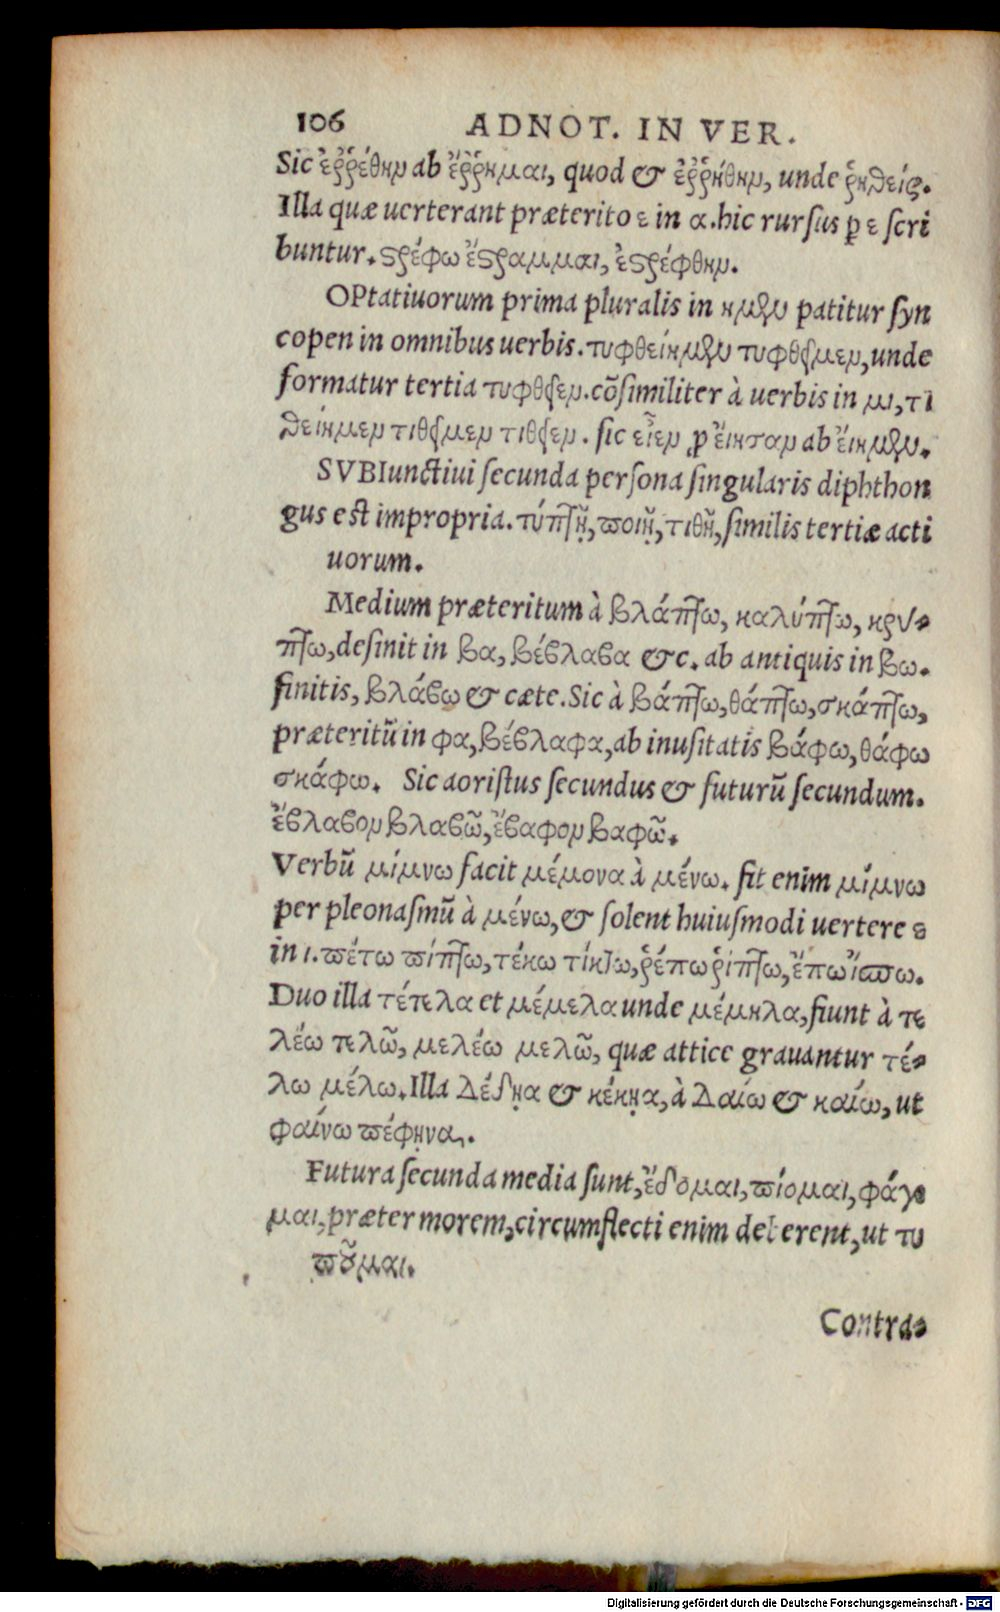 106 ADNOT. IN VER.
Sic ἐῤῥέθην ab ἔῤῥημαι, quod & ἐῤῥήθην, unde ῥηθείς.
Illa quæ uerterant præterito ε in α. hic rursus ꝑ ε scri
buntur. ϛρέφω ἔϛραμμαι, ἐϛρέφθην.
OPtatiuorum prima pluralis in ημεν patitur syn
copen in omnibus uerbis. τυφθείημεν τυφθεῖμεν, unde
formatur tertia τυφθεῖεν. cõsimiliter à uerbis in μι, τι
θείημεν τιθεῖμεν τιθεῖεν. sic εἶεν ꝓ εἴησαν ab εἴημεν.
SVBIunctiui secunda persona singularis diphthon
gus est impropria. τύπτῃ, ποιῇ, τιθῇ, similis tertiæ acti
uorum.
Medium præteritum à βλάπτω, καλύπτω, κρύ-
πτω, desinit in βα, βέβλαβα &c. ab antiquis in βω.
finitis, βλάβω & cæte. Sic à βάπτω, θάπτω, σκάπτω,
præteritũ in φα, βέβλαφα, ab inusitatis βάφω, θάφω
σκάφω. Sic aoristus secundus & futurũ secundum.
ἔβλαβον βλαβῶ, ἔβαφον βαφῶ.
Verbũ μίμνω facit μέμονα à μένω. fit enim μίμνω
per pleonasmũ à μένω, & solent huiusmodi uertere ε
in ι. πέτω πίπτω, τέκω τίκτω, ῥέπω ῥίπτω, ἔπω ἴπω.
Duo illa τέτελα et μέμελα unde μέμηλα, fiunt à τε
λέω τελῶ, μελέω μελῶ, quæ attice grauantur τέ-
λω μέλω. Illa Δέδῃα & κέκῃα, à Δαίω & καίω, ut
φαίνω πέφῃνα,.
Futura secunda media sunt, ἔδομαι, πίομαι, φάγο
μαι, præter morem, circumflecti enim deberent, ut τυ
ποῦμαι.
Contra-
Digitalisierung gefördert durch die Deutsche Forschungsgemeinschaft - DFG